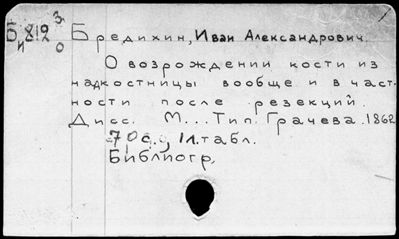 Б 812 3/0
и
Бредихин, Иван Александрович.
О возрождении кости из
надкостницы вообще и в част-
ности после резекций.
Дисс. М... Тип. Грачева. 1862
70с., 1л. табл.
Библиогр.